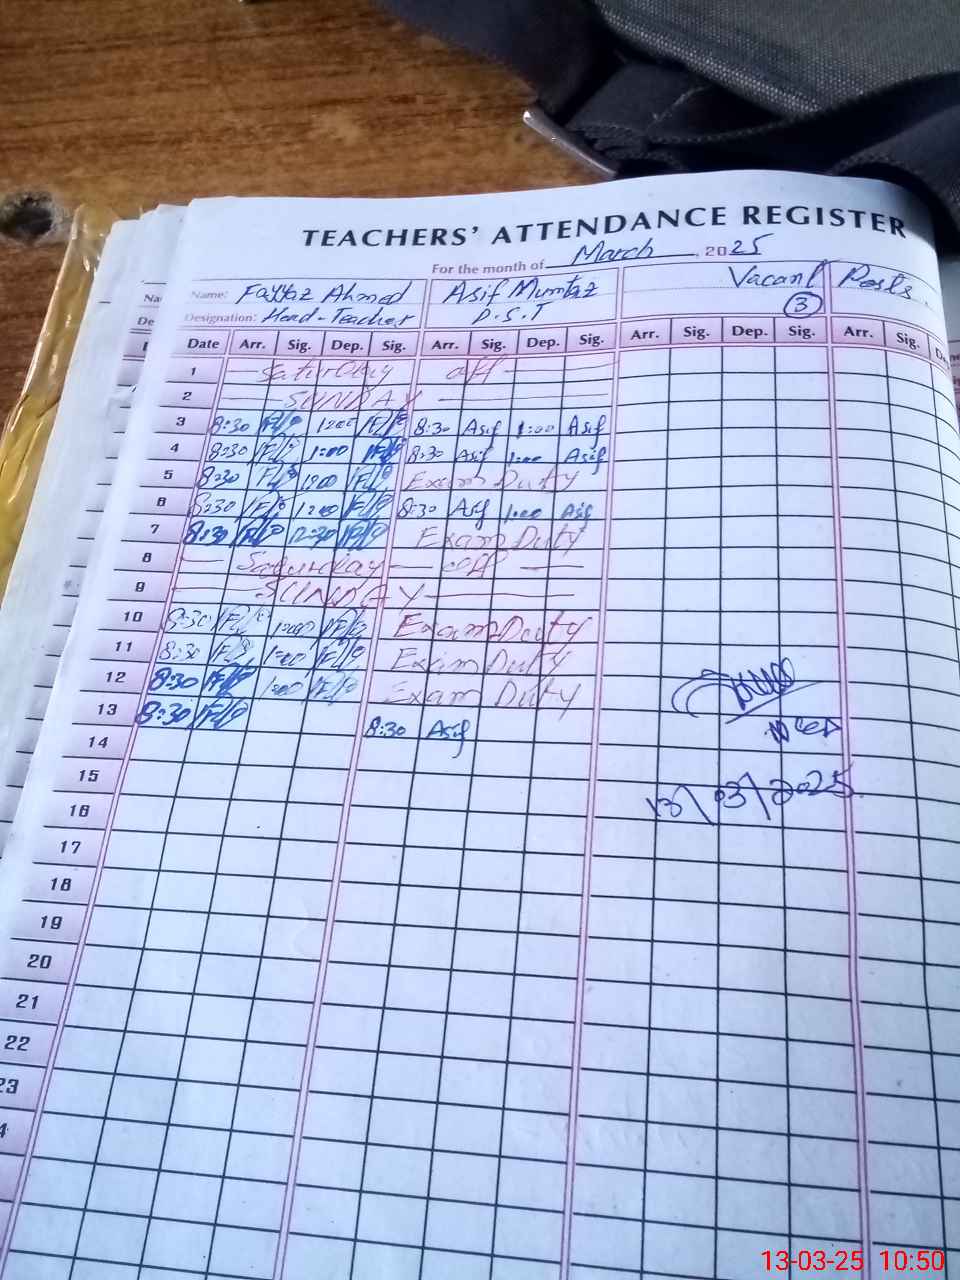 TEACHERS' ATTENDANCE REGISTER
For the month of March, 2025
Name: Fayyaz Ahmed Asif Mumtaz Vacant Posts
Designation: Head-Teacher P.S.T 3
Date Arr. Sig. Dep. Sig. Arr. Sig. Dep. Sig. Arr. Sig. Dep. Sig. Arr. Sig.
1 Saturday off
2 SUNDAY
3 8:30 1:00 8:30 Asif 1:00 Asif
4 8:30 1:00 8:30 Asif 1:00 Asif
5 8:30 1:00 Exam Duty
6 8:30 1:00 8:30 Asif 1:00 Asif
7 8:30 12:30 Exam Duty
8 Saturday off
9 SUNDAY
10 8:30 1:00 Exam Duty
11 8:30 1:00 Exam Duty
12 8:30 1:00 Exam Duty
13 8:30 8:30 Asif
14
15
13/03/2025
16
17
18
19
20
21
22
23
13-03-25 10:50